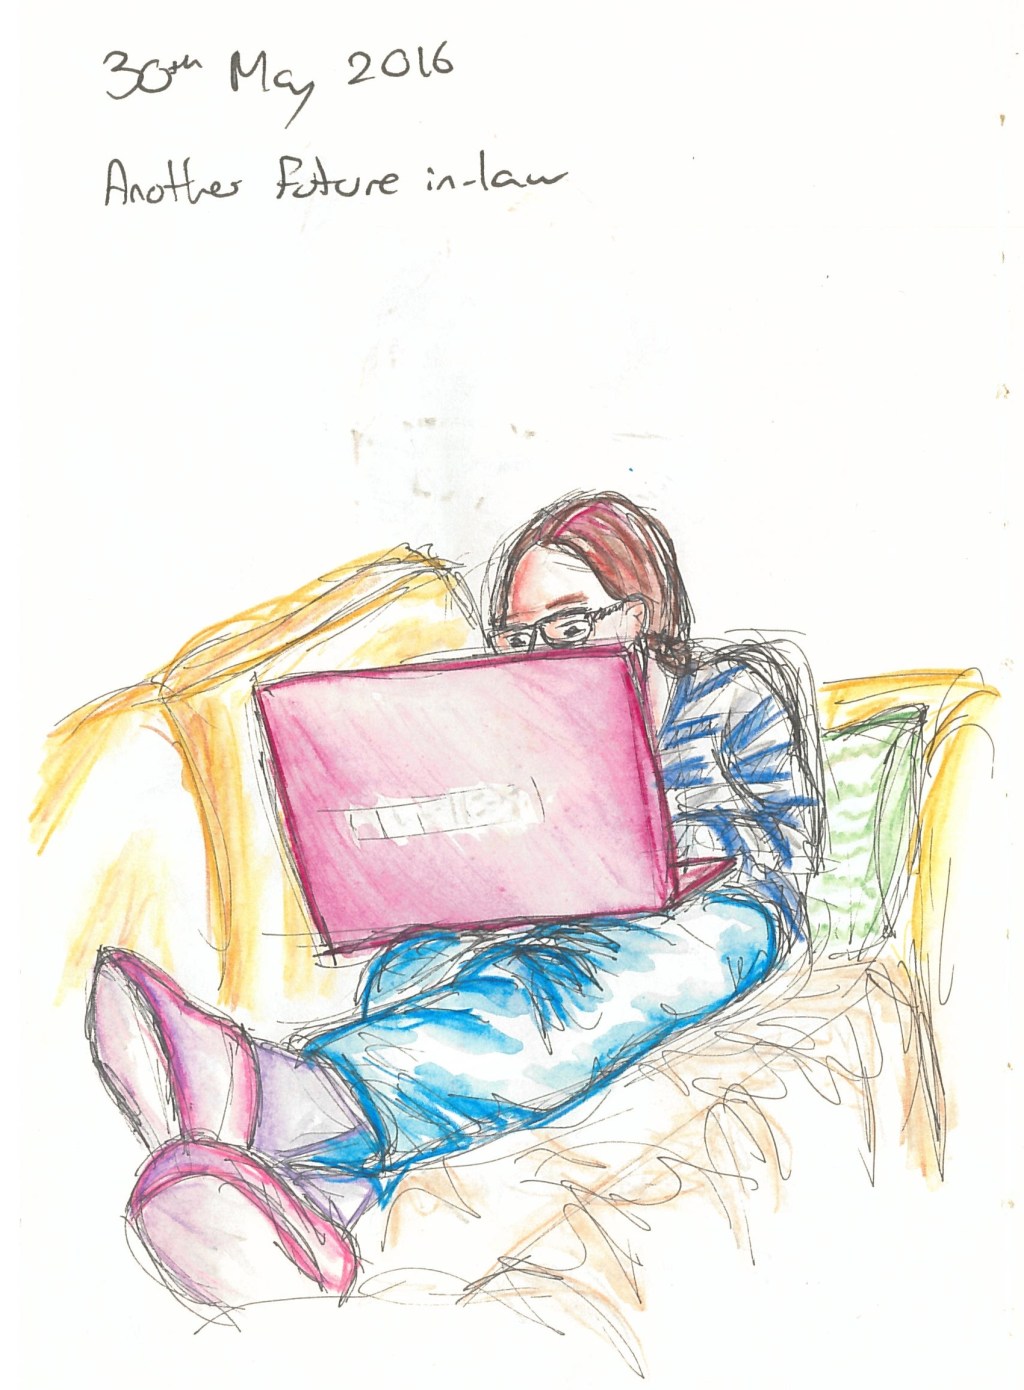 30th May 2016
Another future in-law